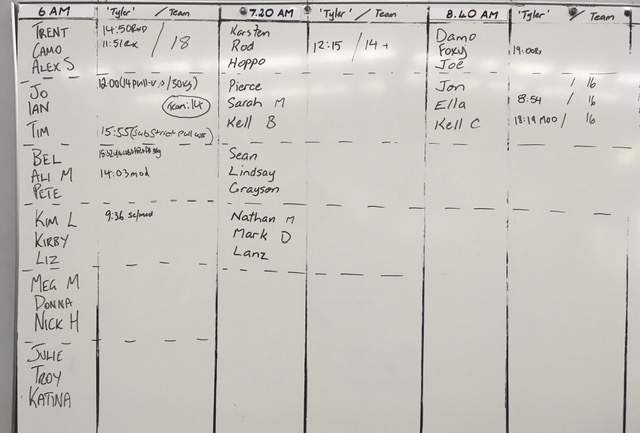 6 AM 'Tyler' / Team 7.20 AM 'Tyler' / Team 8.40 AM 'Tyler' / Team
TRENT 14:50 Karsten Damo
CAMO 11:51 Rx / 18 Rod 12:15 / 14+ Foxy 19:00
ALEX S Hoppo Joe
JO 12:00 (14 pull-u / 50kg) Pierce Jon / 16
IAN team: 14 Sarah M Ella 8:54 / 16
TIM 15:55 (substrict pull ups) Kell B Kell C 18:19 MOD / 16
BEL Sean
ALI M 14:03 mod Lindsay
PETE Grayson
KIM L 9:36 sc/mod Nathan M
KIRBY Mark D
LIZ Lanz
MEG M
DONNA
NICK H
JULIE
TROY
KATINA